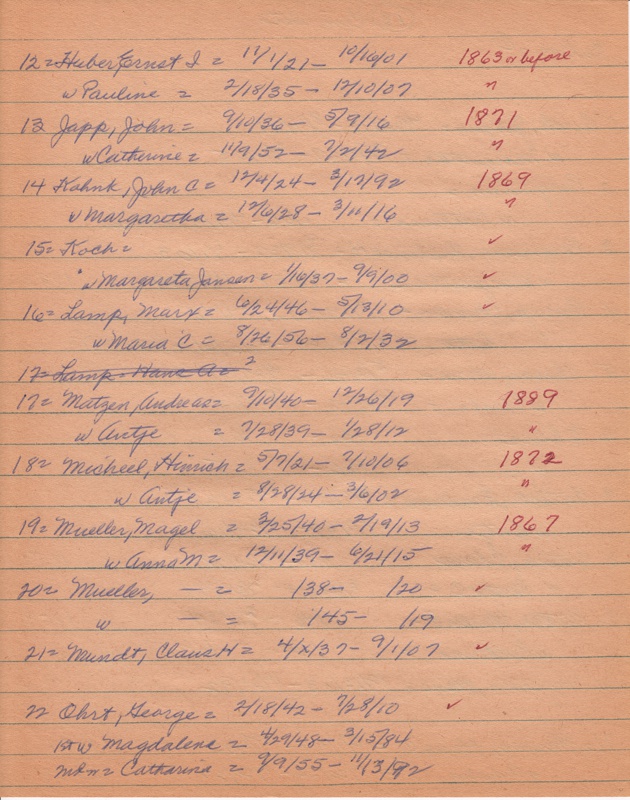 12 = Huber, Ernst I = 11/1/21 - 10/16/01 1863 or before
w Pauline = 2/18/35 - 12/10/07 "
13 Japp, John = 9/10/36 - 5/9/16 1871
w Catherine = 11/9/52 - 7/2/42 "
14 Kahnk, John C = 12/4/24 - 3/17/92 1869
w Margaretha = 12/6/28 - 3/11/16 "
15 = Koch = ✓
" w Margareta Jansen = 1/16/37 - 9/9/00 ✓
16 = Lamp, Marx = 6/24/46 - 5/13/10 ✓
w Maria C = 8/26/56 - 8/2/32
17 = Lamp - Hans A = 2
17 = Matzen, Andreas = 9/10/40 - 12/26/19 1889
w Antje = 7/28/39 - 1/28/12 "
18 = Micheel, Hinrich = 5/7/21 - 7/10/06 1872
w Antje = 8/28/24 - 3/6/02 "
19 = Mueller, Magel = 3/25/40 - 2/19/13 1867
w Anna M = 12/11/39 - 6/21/15 "
20 = Mueller, — = /38 - /20 ✓
w — = /45 - /19
21 = Mundt, Claus H = 4/x/37 - 9/1/07 ✓
22 Ohrt, George = 2/18/42 - 7/28/10 ✓
1st w Magdalena = 4/29/48 - 3/15/84
= Catharina = 9/9/55 -